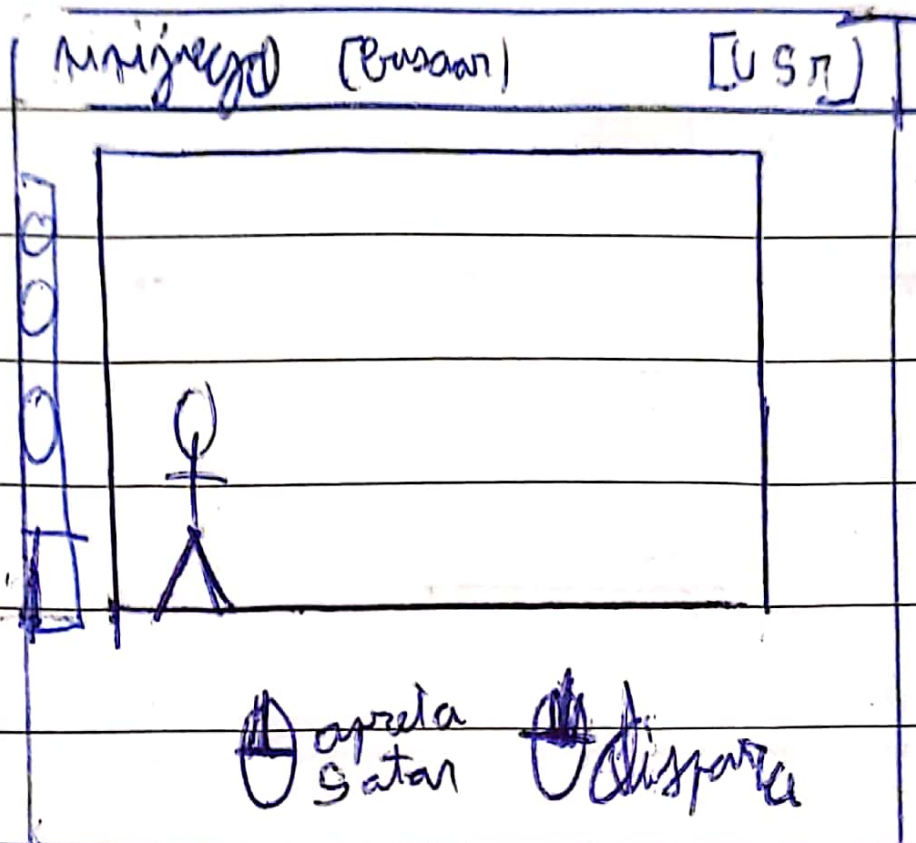 minijuego (Buscar) [USR]
apreta
Satar
dispara